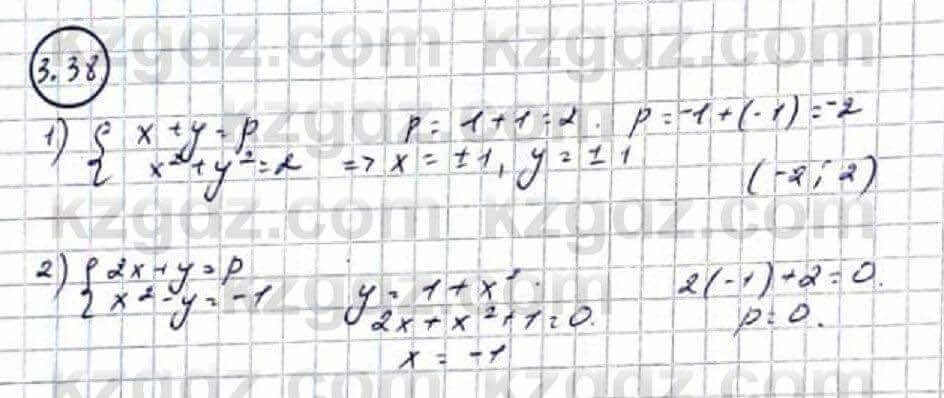 3.38
1) { x + y = p
x² + y² = 2 => x = ±1, y = ±1
p = 1 + 1 = 2. p = -1 + (-1) = -2
(-2; 2)
2) { 2x + y = p
x² - y = -1
y = 1 + x².
2x + x² + 1 = 0.
x = -1
2(-1) + 2 = 0.
p = 0.
kzgdz.com kzgdz.com
kzgdz.com kzgdz.com
kzgdz.com kzgdz.com
kzgdz.com kzgdz.com
kzgdz.com kzgdz.com